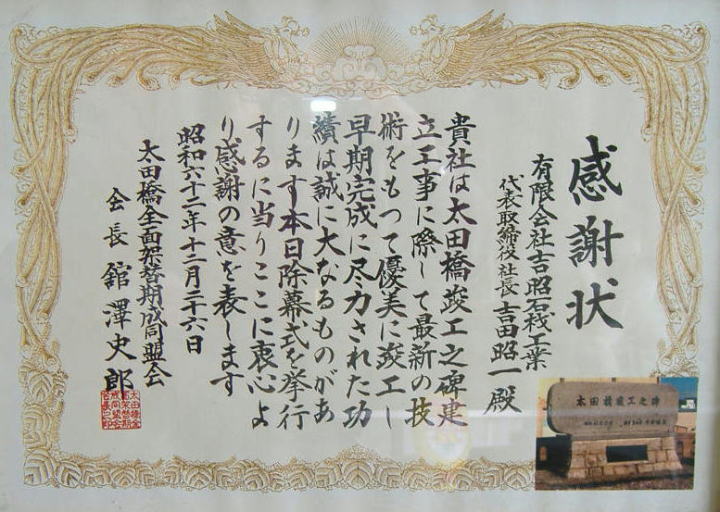 感謝状
有限会社吉昭石材工業
代表取締役社長 吉田昭一殿
貴社は太田橋竣工之碑建
立工事に際して最新の技
術をもつて優美に竣工し
早期完成に尽力された功
績は誠に大なるものがあ
ります本日除幕式を挙行
するに当りここに衷心よ
り感謝の意を表します
昭和六十二年十二月二十六日
太田橋全面架替期成同盟会
会長 舘澤史郎
太田橋竣工之碑